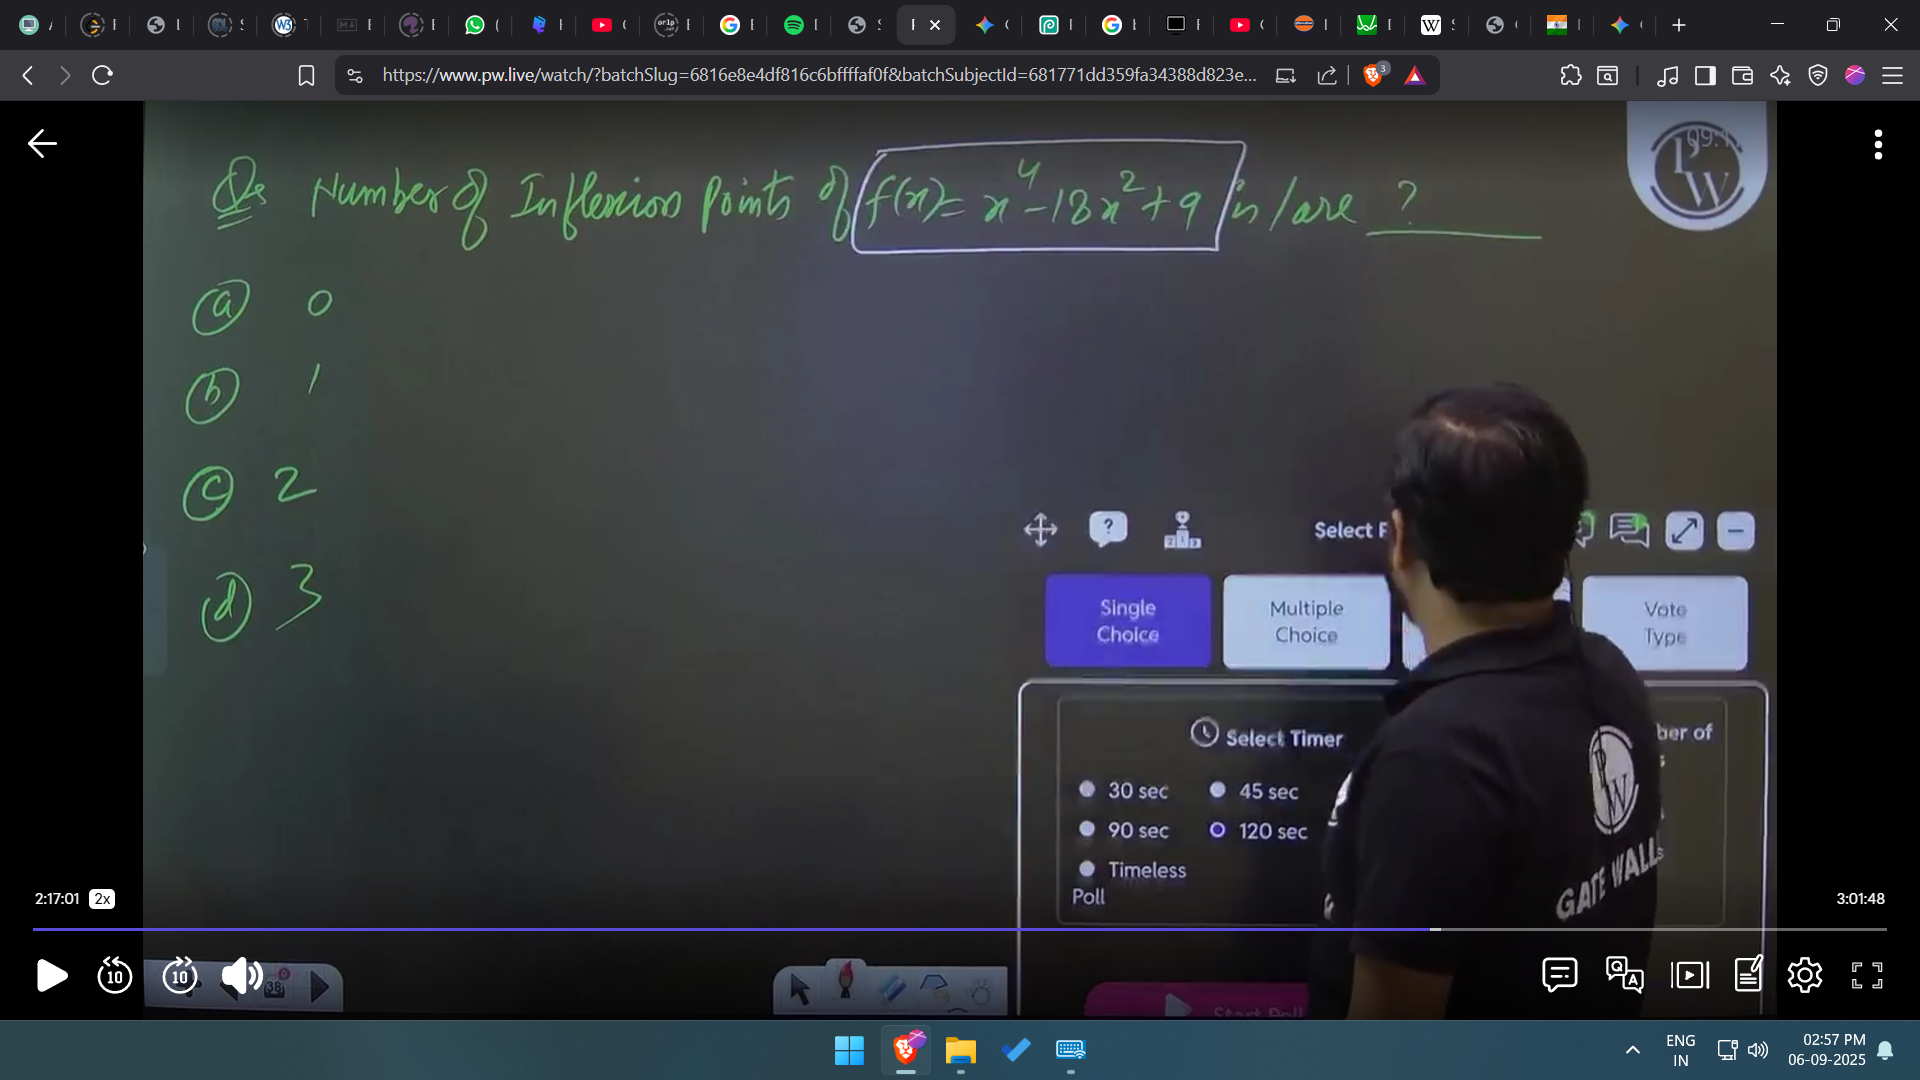 https://www.pw.live/watch/?batchSlug=6816e8e4df816c6bffffaf0f&batchSubjectId=681771dd359fa34388d823e...
3
Qs Number of Inflexion Points of f(x) = x⁴ - 18x² + 9 is/are ?
ⓐ 0
ⓑ 1
ⓒ 2
ⓓ 3
PW
Select
Single Choice
Multiple Choice
Vote Type
Select Timer
30 sec
45 sec
90 sec
120 sec
Timeless
Poll
PW
GATE WALL
2:17:01 2x
3:01:48
10
10
38
Start Poll
ENG
IN
02:57 PM
06-09-2025